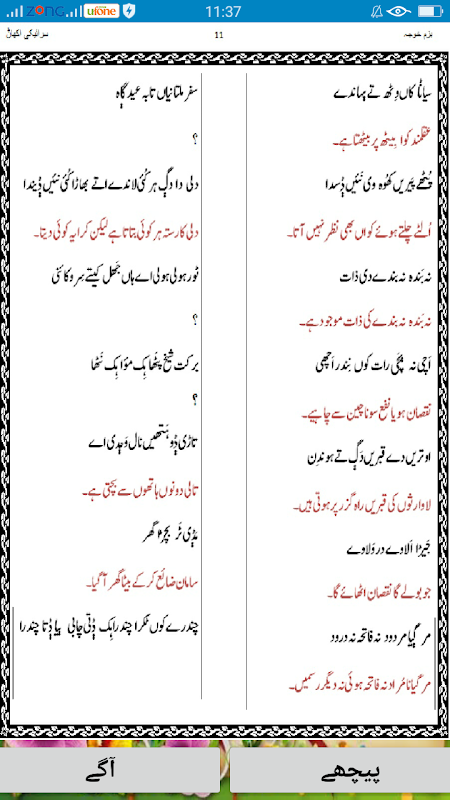 ZONG Ufone 11:37
سرائیکی اکھاݨ 11 بزم خوجہ
سیاݨا کاں وِٹھ تے بہاندے
عقلمند کوا بیٹھ پر بیٹھتا ہے۔
پُٹھے پیریں کھوہ وی نئیں ݙِسدا
اُلٹے چلتے ہوئے کواں بھی نظر نہیں آتا۔
نہ بَندہ نہ بندے دی ذات
نہ بَندہ نہ بندے کی ذات موجود ہے۔
اَچی نہ پَچی رات کوں نِندر اَچھی
نقصان ہو یا نفع سونا چین سے چاہیے۔
اوتریں دے قبریں وَڳ تے ہوندِن
لاوارثوں کی قبریں راہ گزر پر ہوتی ہیں۔
جَیڑا اَلاوے در وَلاوے
جو بولے گا نقصان اٹھائے گا۔
مر ڳیا مردود نہ فاتحہ نہ درود
مر گیا نامُراد نہ فاتحہ ہوئی نہ دیگر رسمیں۔
سفر ملتانیاں تا بہ عید گاہ
؟
دلی دا دڳ ہر کُئی لاندے اتے بھاڑا کُئی نئیں ݙیندا
دلی کا رستہ ہر کوئی بتاتا ہے لیکن کرایہ کوئی دیتا۔
ٹور ہولی ہولی اے ہاں جَھل کیتے سِر وکائی
؟
برکت شیخ پٹھا ہِک مؤا ہِک نَٹھا
؟
تاڑی ݙو ہَتھیں نال وَڄدی اے
تالی دونوں ہاتھوں سے بجتی ہے۔
سامان ضائع کر کے بیٹا گھر آ گیا۔
چندرے کوں ٹکرا چندرا ہِک ݙتی چابی بیا ݙتا چندرا
آگے پیچھے